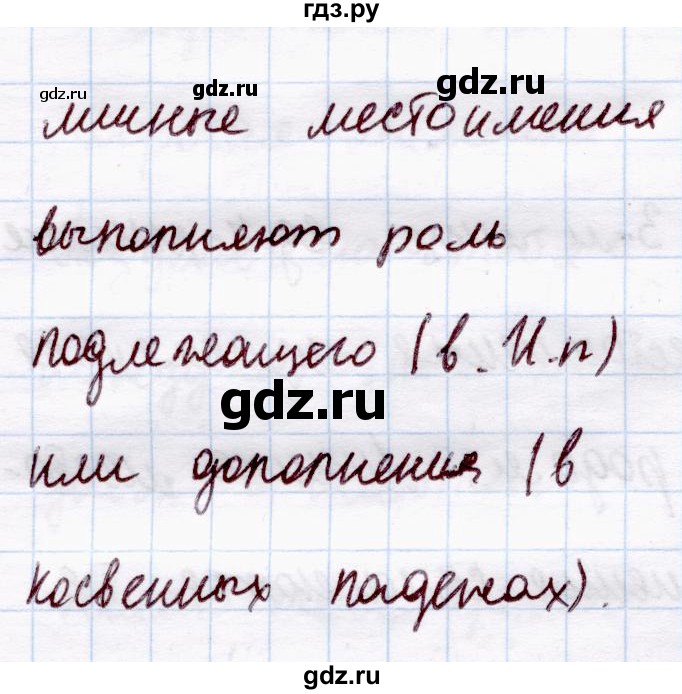 гдз.ру
gdz.ru gdz.ru gdz.ru
личные местоимения
выполняют роль
подлежащего (в И.п)
gdz.ru
или дополнения (в
косвенных падежах).
gdz.ru